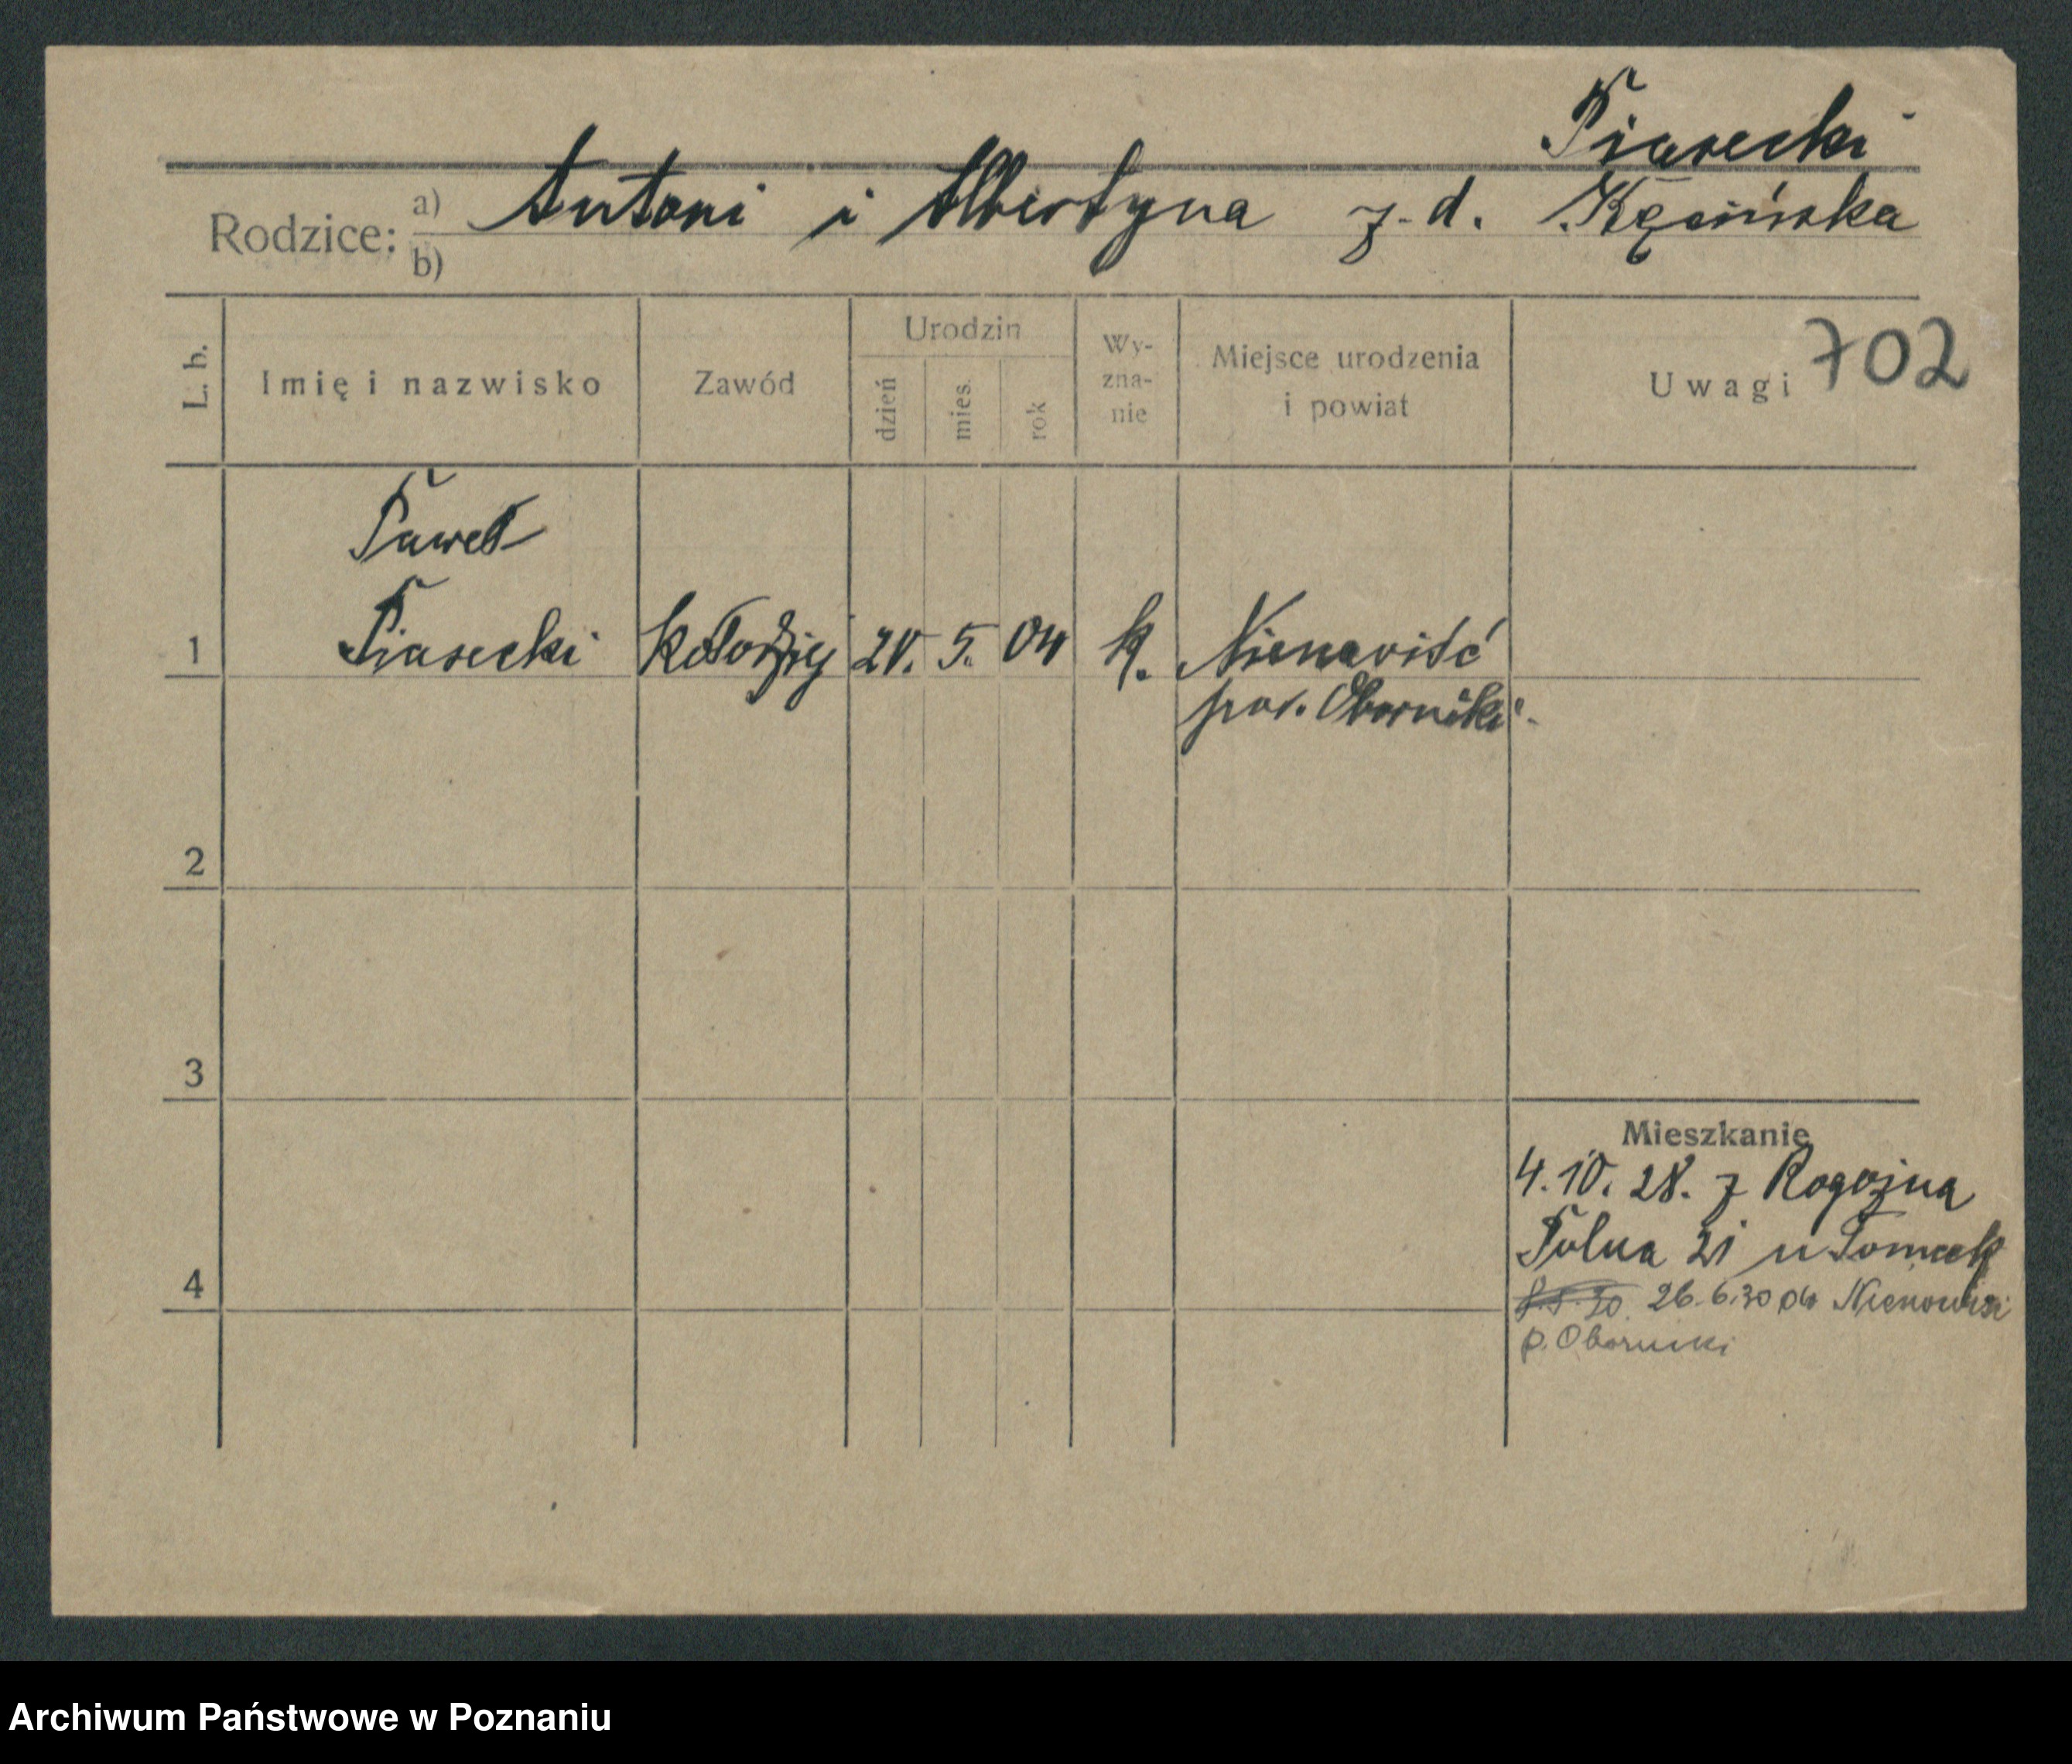 Piasecki
Rodzice: a) Antoni i Albertyna z. d. Kęsińska
b)
L. b. Imię i nazwisko Zawód Urodzin dzień mies. rok Wy-zna-nie Miejsce urodzenia i powiat Uwagi 702
Paweł
1 Piasecki kołodziej 5. 04 k. Nienawiść
pow. Oborniki.
2
3
Mieszkanie
4. 10. 28. z Rogoźna
Polna 21 u Tomcek
4
26.6.30 do
p. Oborniki
Archiwum Państwowe w Poznaniu